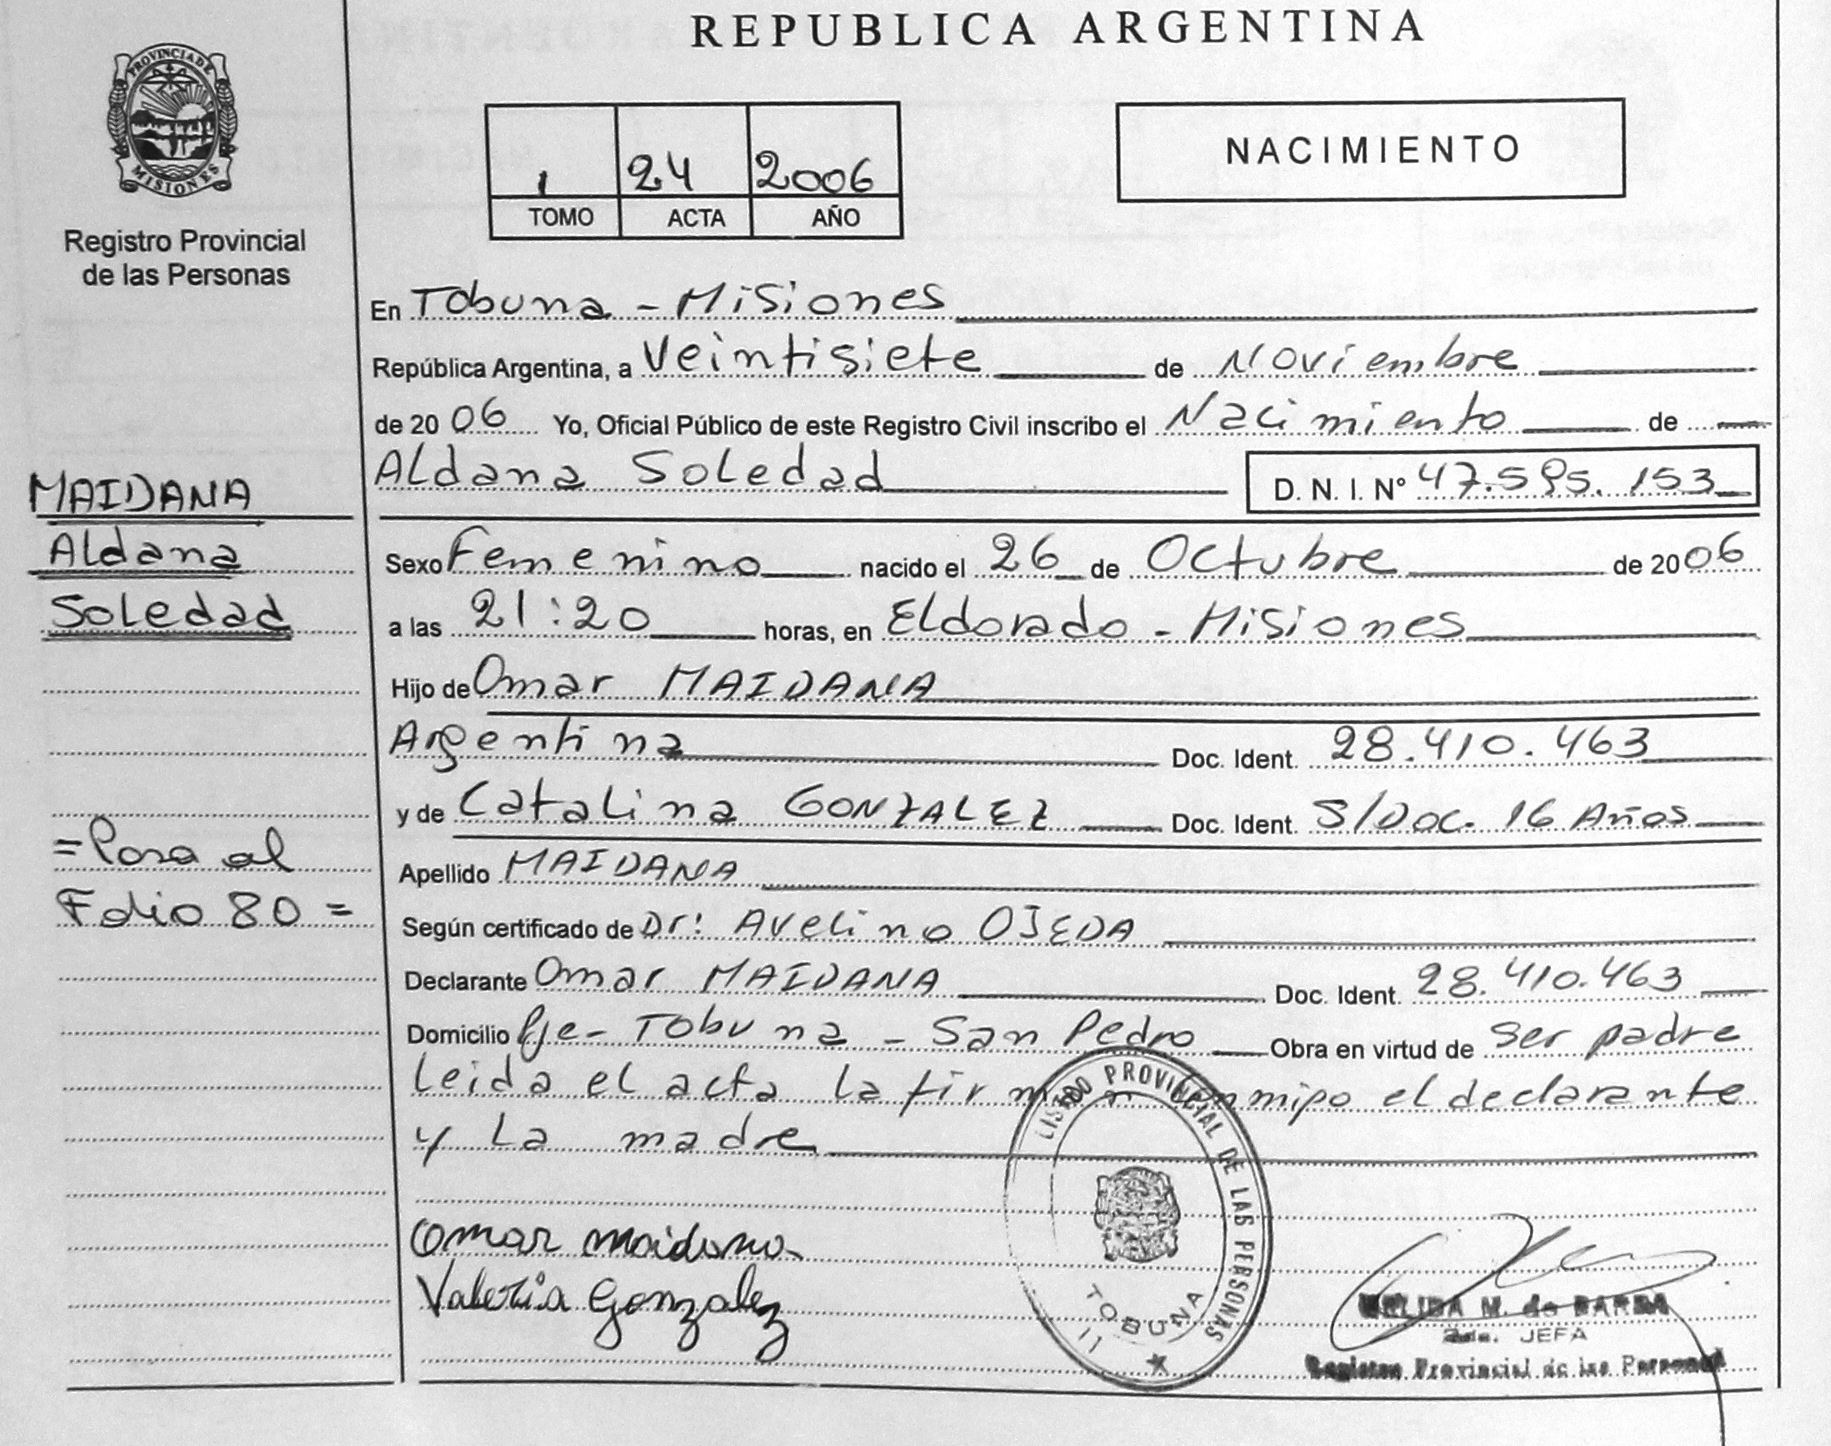 REPUBLICA ARGENTINA
PROVINCIA DE
MISIONES
Registro Provincial
de las Personas
1 24 2006
TOMO ACTA AÑO
NACIMIENTO
En Tobuna - Misiones
República Argentina, a Veintisiete de Noviembre
de 2006 Yo, Oficial Público de este Registro Civil inscribo el Nacimiento de
Aldana Soledad D. N. I. N° 47.595.153
MAIDANA
Aldana
Soledad
Sexo Femenino nacido el 26 de Octubre de 2006
a las 21:20 horas, en Eldorado - Misiones
Hijo de Omar MAIDANA
Argentina Doc. Ident. 28.410.463
y de Catalina GONZALEZ Doc. Ident. S/Doc. 16 Años
Apellido MAIDANA
= Pasa al
Folio 80 =
Según certificado de Dr: Avelino OJEDA
Declarante Omar MAIDANA Doc. Ident. 28.410.463
Domicilio Pje - Tobuna - San Pedro Obra en virtud de ser padre
Leida el acta la firman conmigo el declarante
y La madre
Omar Maidana
Valeria Gonzalez
PROVINCIAL DE LAS PERSONAS
TOBUNA
M. de
2da. JEFA
Registro Provincial de las Personas